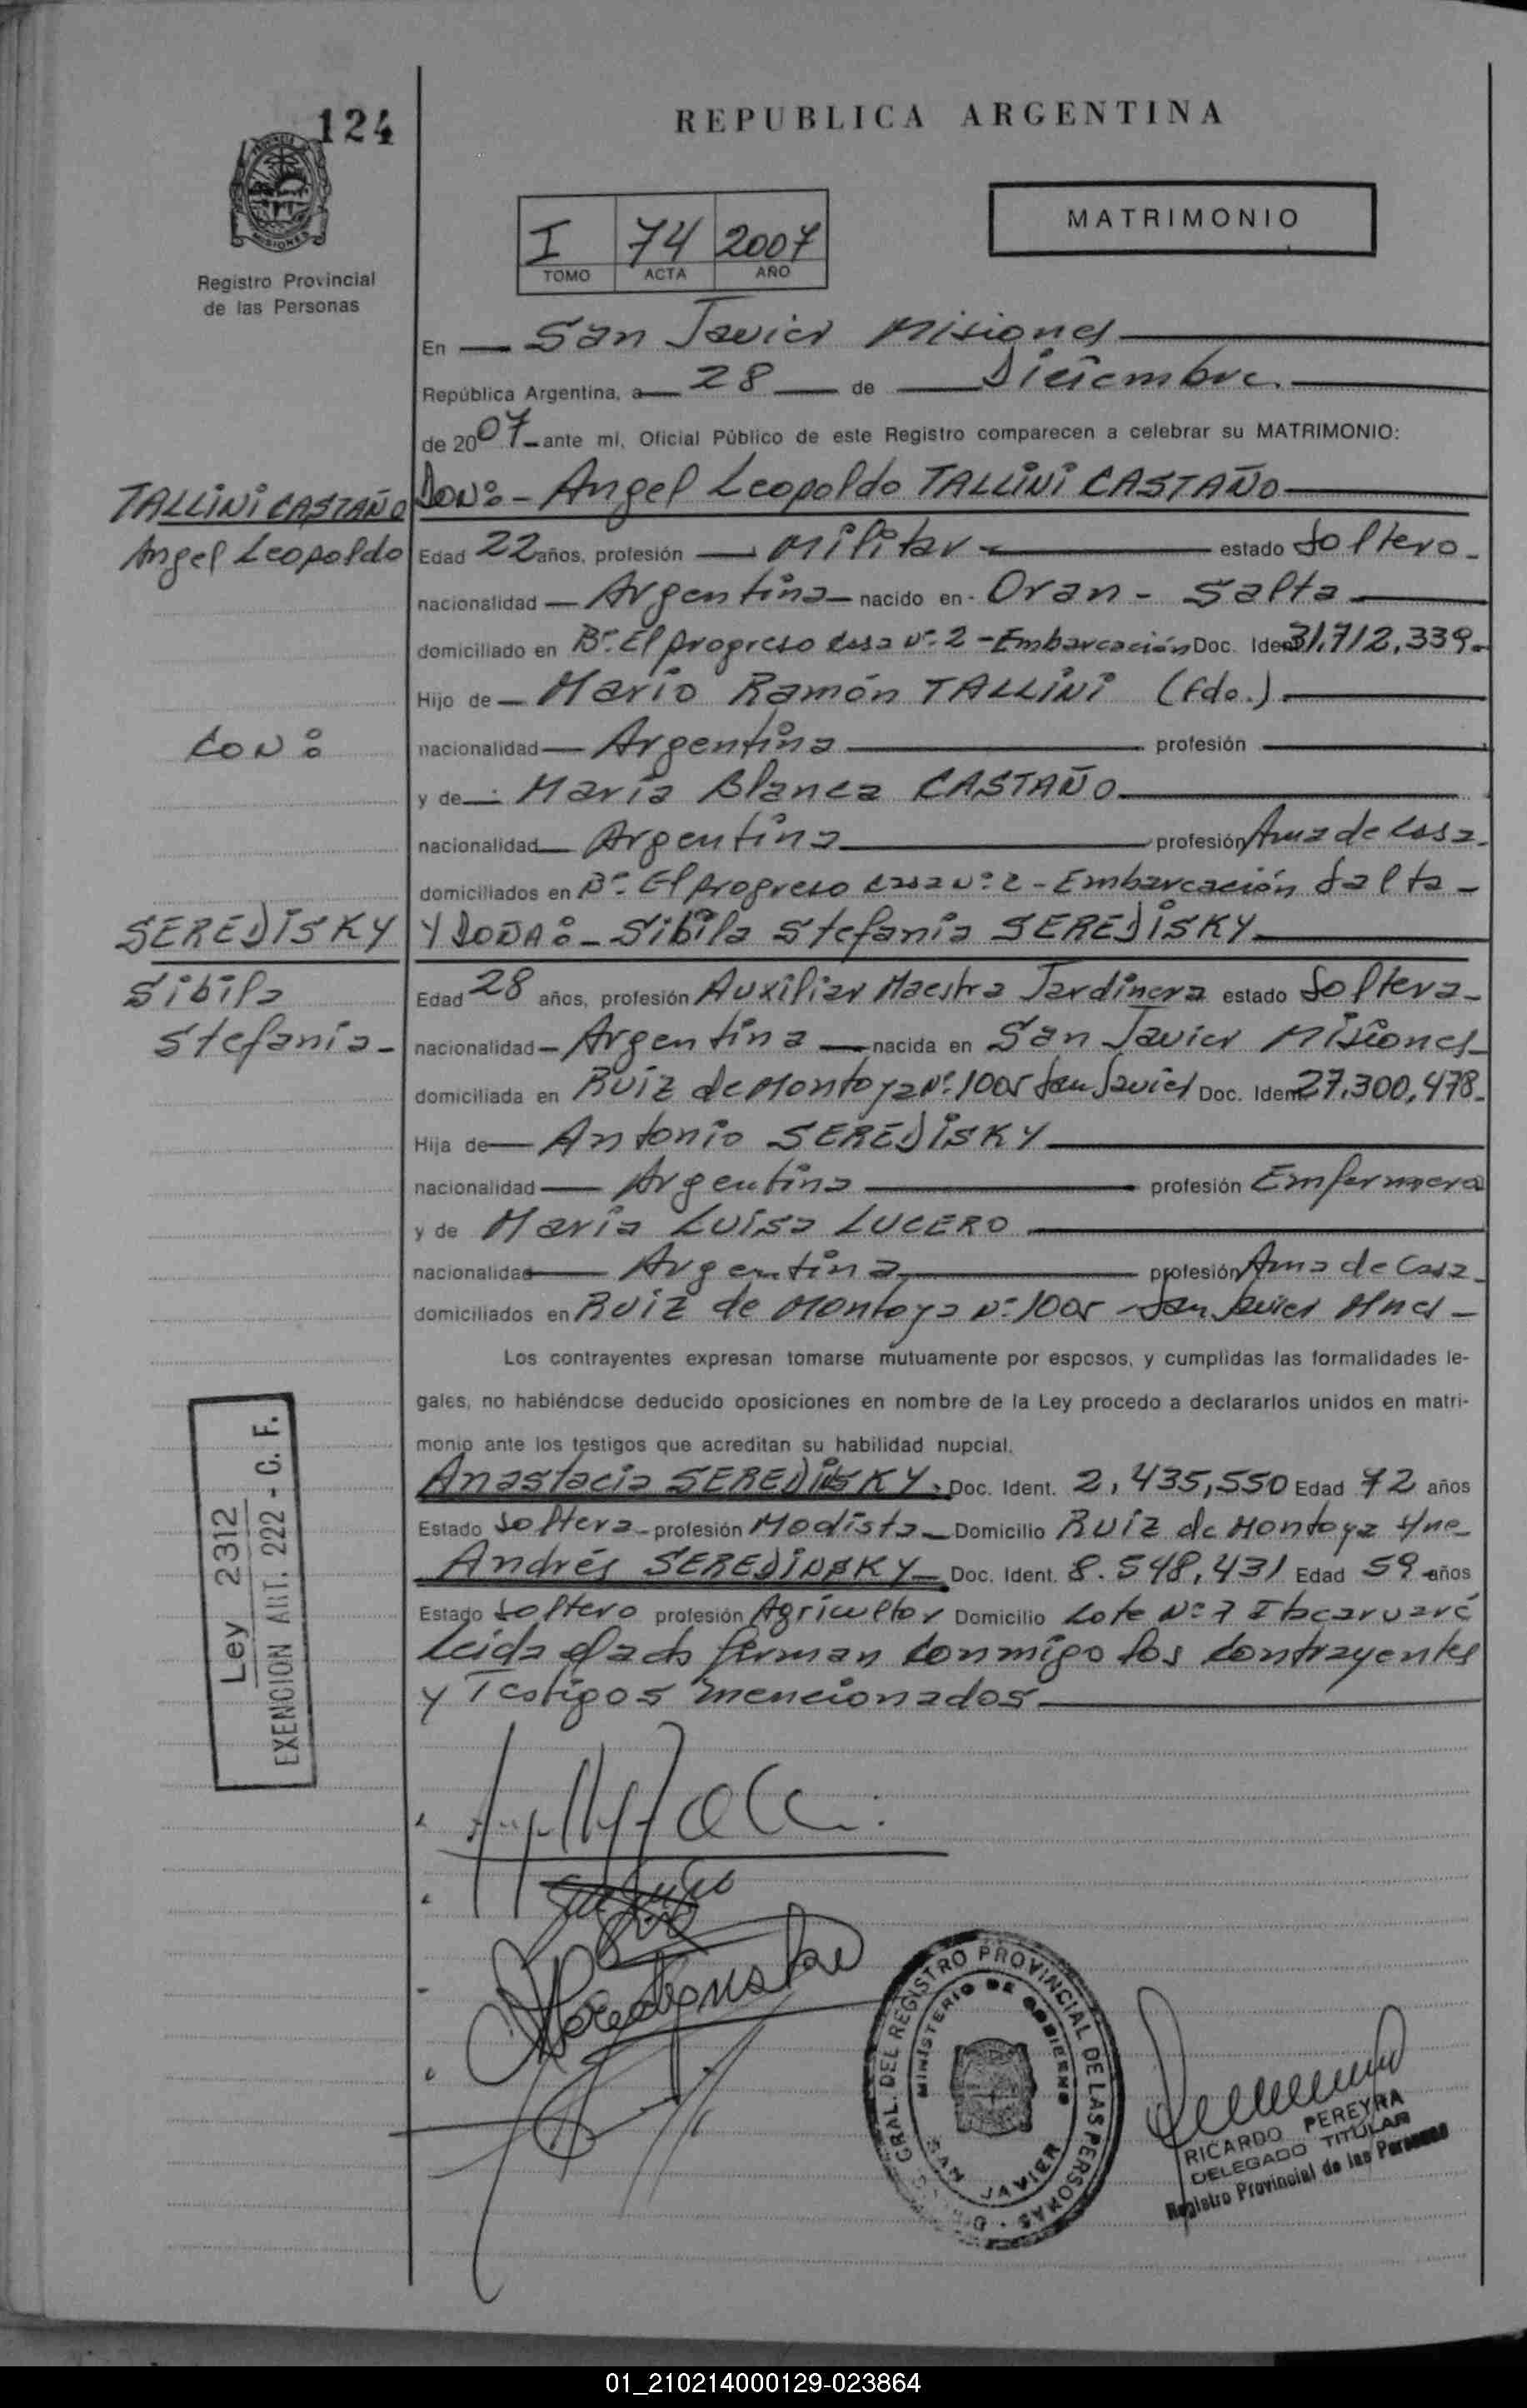 124
REPUBLICA ARGENTINA
MISIONES
Registro Provincial
de las Personas
I 74 2007
TOMO ACTA AÑO
MATRIMONIO
En San Javier Misiones
República Argentina, a 28 de Diciembre.
de 2007 ante mí, Oficial Público de este Registro comparecen a celebrar su MATRIMONIO:
TALLINI CASTAÑO
Angel Leopoldo
DON:- Angel Leopoldo TALLINI CASTAÑO
Edad 22 años, profesión Militar estado Soltero
nacionalidad Argentina nacido en Oran - Salta
domiciliado en Bº. El progreso casa Nº. 2 - Embarcación Doc. Ident. 31.712.339
Hijo de Mario Ramón TALLINI (fdo.)
CON:
nacionalidad Argentina profesión
y de María Blanca CASTAÑO
nacionalidad Argentina profesión Ama de Casa
domiciliados en Bº. El progreso casa Nº 2 - Embarcación Salta
SEREDISKY
Sibila
Stefanía
Y DOÑA:- Sibila Stefanía SEREDISKY
Edad 28 años, profesión Auxiliar Maestra Jardinera estado Soltera
nacionalidad Argentina nacida en San Javier Misiones
domiciliada en Ruiz de Montoya Nº. 1005 San Javier Doc. Ident. 27.300.478
Hija de Antonio SEREDISKY
nacionalidad Argentina profesión Emfermera
y de María Luisa LUCERO
nacionalidad Argentina profesión Ama de Casa
domiciliados en Ruiz de Montoya Nº 1005 - San Javier Mnes
Los contrayentes expresan tomarse mutuamente por esposos, y cumplidas las formalidades le-
gales, no habiéndose deducido oposiciones en nombre de la Ley procedo a declararlos unidos en matri-
monio ante los testigos que acreditan su habilidad nupcial.
Anastacia Doc. Ident. 2,435,550 Edad 72 años
Estado Soltera profesión Modista Domicilio Ruiz de Montoya
Andrés Doc. Ident. 8.548.431 Edad 59 años
Estado Soltero profesión Agricultor Domicilio Lote Nº 7 Itacaruaré
Leida el acta firman conmigo los contrayentes
y Testigos mencionados
Ley 2312
EXENCION ART. 222 - C. F.
GRAL. DEL REGISTRO PROVINCIAL DE LAS PERSONAS
MINISTERIO DE GOBIERNO
SAN JAVIER
RICARDO PEREYRA
DELEGADO TITULAR
Registro Provincial de las Personas
01_210214000129-023864